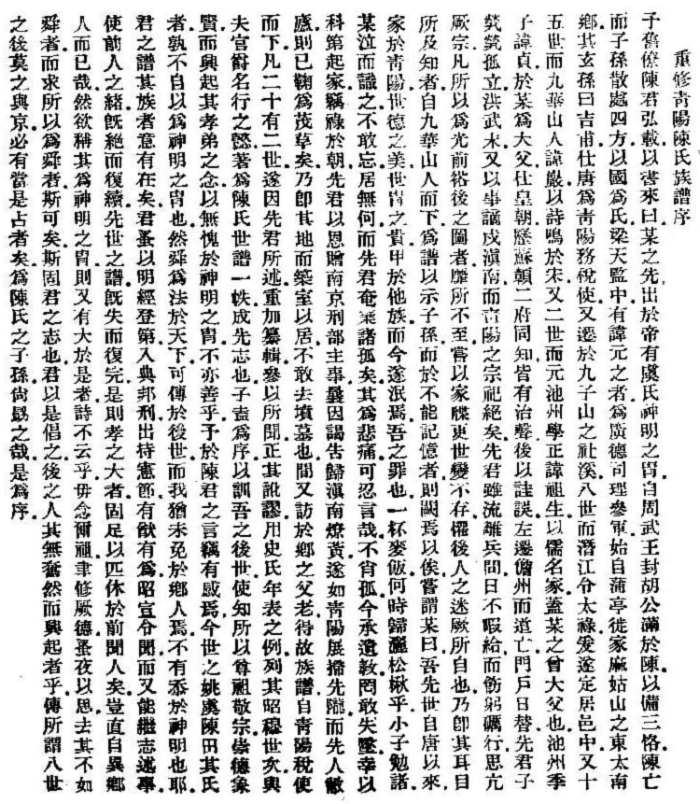 重修青陽陳氏族譜序
予舊僚陳君弘載以書來曰某之先出於帝有虞氏神明之胄自周武王封胡公滿於陳以備三恪陳亡
而子孫散處四方以國爲氏梁天監中有諱元之者爲廣德司理參軍始自蒲亭徙家麻姑山之東太南
鄉其玄孫曰吉甫仕唐爲青陽務稅使又遷於九子山之社溪八世而潛江令太祿爰遂定居邑中又十
五世而九華山人諱巖以詩鳴於宋又二世而元池州學正諱祖生以儒名家蓋某之曾大父也池州季
子諱貞於某爲大父仕皇朝歷蘇贛二府同知皆有治聲後以詿誤左遷儋州而道亡門戶日替先君子
煢煢孤立洪武末又以事謫戍滇南而青陽之宗祀絕矣先君雖流離兵間日不暇給而飭躬礪行思亢
厥宗凡所以爲光前裕後之圖者靡所不至嘗以家牒更世變不存懼後人之迷厥所自也乃卽其耳目
所及知者自九華山人而下爲譜以示子孫而於不能記憶者則闕焉以俟嘗謂某曰吾先世自唐以來
家於青陽世德之美世胄之貴甲於他族而今遂泯焉吾之罪也一杯麥飯何時歸灑松楸乎小子勉諸
某泣而識之不敢忘居無何而先君奄棄諸孤矣其爲悲痛可忍言哉不肖孤今承遺教罔敢失墜幸以
科第起家竊祿於朝先君以恩贈南京刑部主事曩因謁告歸滇南燎黃遂如青陽展掃先隴而先人敝
廬則已鞠爲茂草矣乃卽其地而築室以居不敢去墳墓也間又訪於鄉之父老得故族譜自青陽稅使
而下凡二十有二世遂因先君所述重加纂輯參以所聞正其訛謬用史氏年表之例列其昭穆世次與
夫官爵名行之懿著爲陳氏世譜一帙成先志也子盍爲序以訓吾之後世使知所以尊祖敬宗崇德象
賢而興起其孝弟之念以無愧於神明之胄不亦善乎予於陳君之言竊有感焉今世之姚虞陳田其氏
者孰不自以爲神明之胄也然舜爲法於天下可傳於後世而我猶未免於鄉人焉不有忝於神明也耶
君之譜其族者意有在矣君蚤以明經登第入典邦刑出持憲節有猷有爲昭宣令聞而又能繼志述事
使前人之緒旣絕而復續先世之譜旣失而復完是則孝之大者固足以匹休於前聞人矣豈直自異鄉
人而已哉然欲稱其爲神明之胄則又有大於是者詩不云乎毋念爾祖聿修厥德蚤夜以思去其不如
舜者而求所以爲舜者斯可矣斯固君之志也君以是倡之後之人其無奮然而興起者乎傳所謂八世
之後莫之與京必有當是占者矣爲陳氏之子孫尙勗之哉是爲序